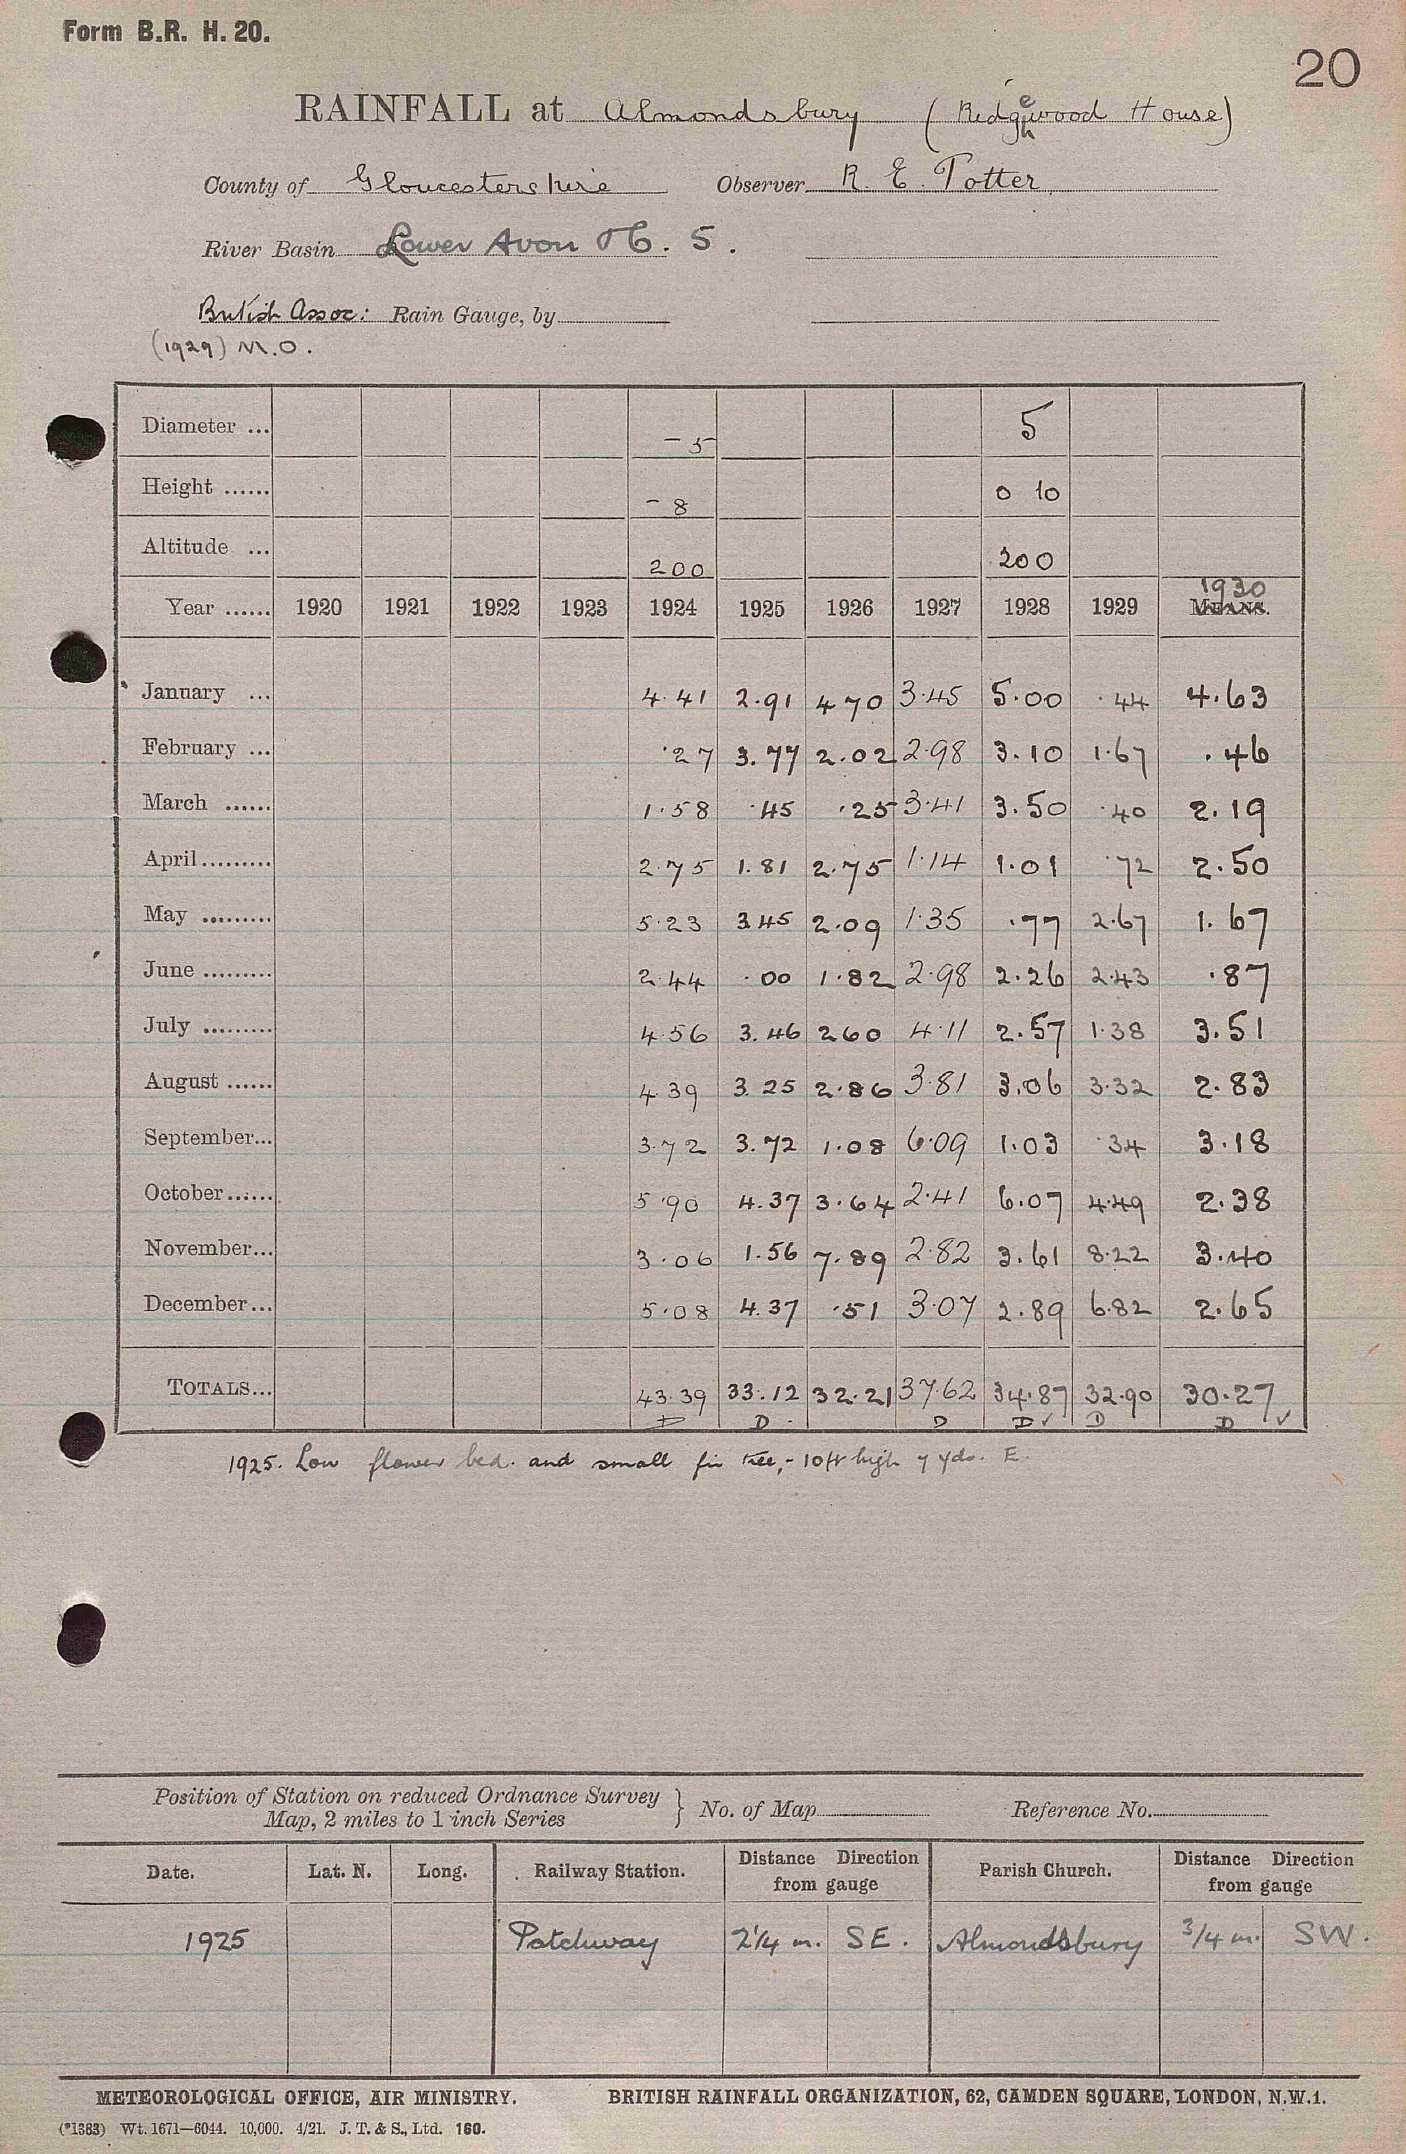 Form B.R. H. 20.
20
RAINFALL at Almondsbury (Ridgewood House)
County of Gloucestershire Observer R. E. Potter
River Basin Lower Avon 5.
British Assoc: Rain Gauge, by
(1929) M.O.
Diameter ... – 5 5
Height ...... – 8 0 10
Altitude ... 200 200
1930
Year ...... 1920 1921 1922 1923 1924 1925 1926 1927 1928 1929 MEANS.
January ... 4.41 2.91 4 70 3.45 5.00 .44 4.63
February ... .27 3.77 2.02 2.98 3.10 1.67 .46
March ...... 1.58 .45 .25 3.41 3.50 .40 2.19
April......... 2.75 1.81 2.75 1.14 1.01 .72 2.50
May ......... 5.23 3.45 2.09 1.35 .77 2.67 1.67
June ......... 2.44 .00 1.82 2.98 2.26 2.43 .87
July ......... 4.56 3.46 2 60 4.11 2.57 1.38 3.51
August ...... 4.39 3.25 2.86 3.81 3.06 3.32 2.83
September... 3.72 3.72 1.08 6.09 1.03 .34 3.18
October...... 5.90 4.37 3.64 2.41 6.07 4.49 2.38
November... 3.06 1.56 7.89 2.82 3.61 8.22 3.40
December... 5.08 4.37 .51 3.07 2.89 6.82 2.65
TOTALS... 43.39 33.12 32.21 37.62 34.87 32.90 30.27
D D D D ✓ D D ✓
1925. Low flower bed. and small fir tree,- 10ft high 7 yds. E.
Position of Station on reduced Ordnance Survey
Map, 2 miles to 1 inch Series } No. of Map Reference No.
Date. Lat. N. Long. Railway Station. Distance from gauge Direction Parish Church. Distance from gauge Direction
1925 Patchway 2¼ m. SE. Almondsbury 3/4 m. SW.
METEOROLOGICAL OFFICE, AIR MINISTRY. BRITISH RAINFALL ORGANIZATION, 62, CAMDEN SQUARE, LONDON, N.W.1.
(*1383) Wt. 1671—6044. 10,000. 4/21. J. T. & S., Ltd. 160.